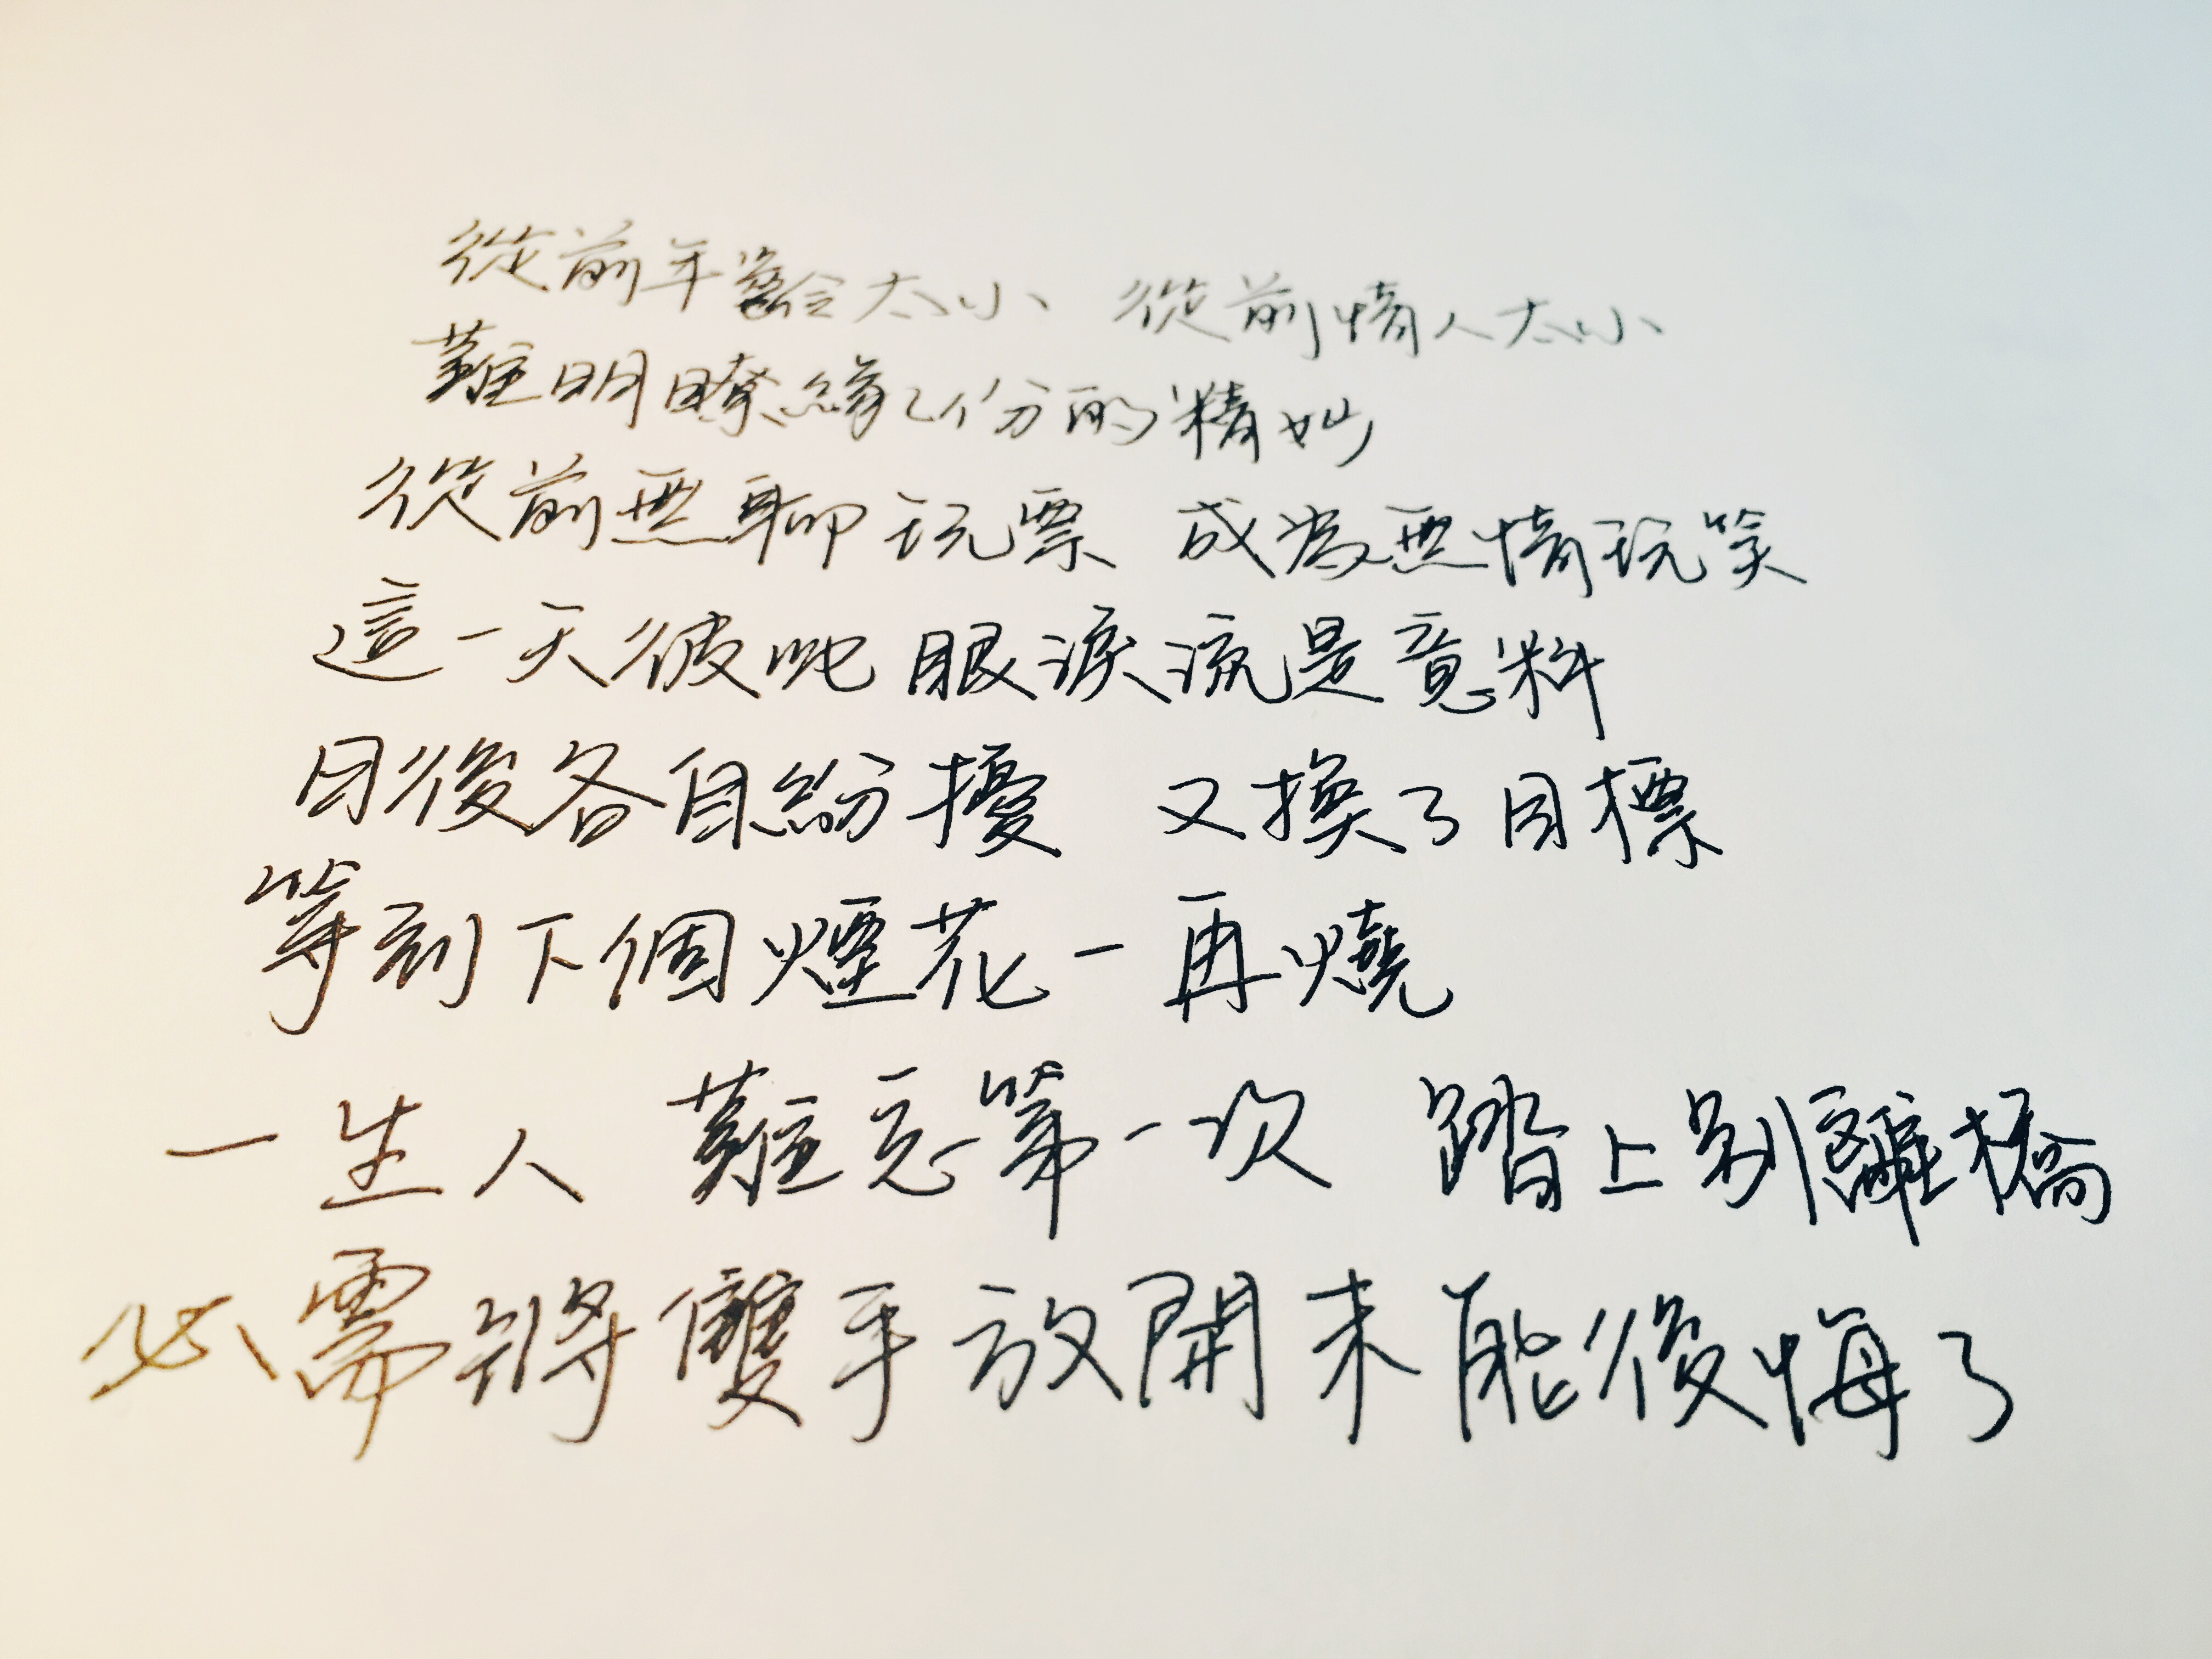 從前年齡太小 從前情人太小
難明瞭緣份的精妙
從前無聊玩票 成為無情玩笑
這一天彼此眼淚流是意料
日後各自紛擾 又換了目標
等到下個煙花一再燒
一生人 難忘第一次 踏上別離橋
必需將雙手放開未能後悔了